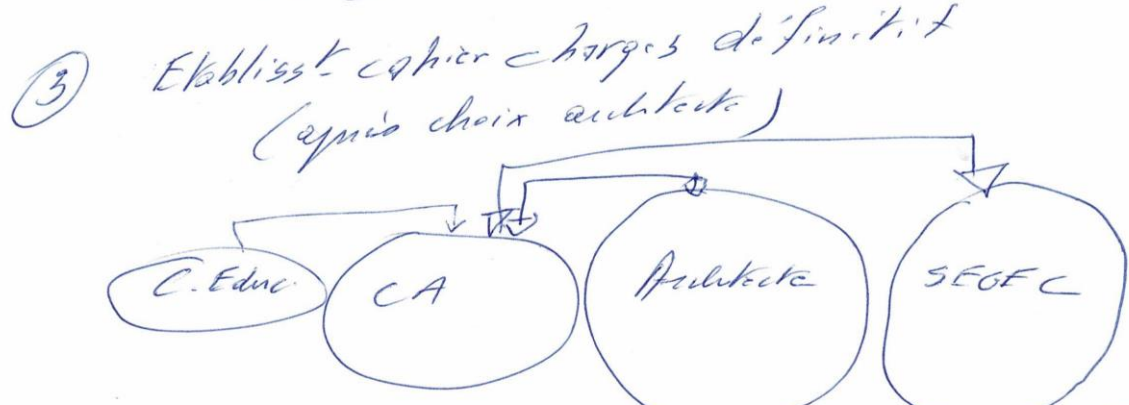 ③ Etablisst cahier charges définitif
(après choix architecte)
C. Educ. CA Architecte SEGEC